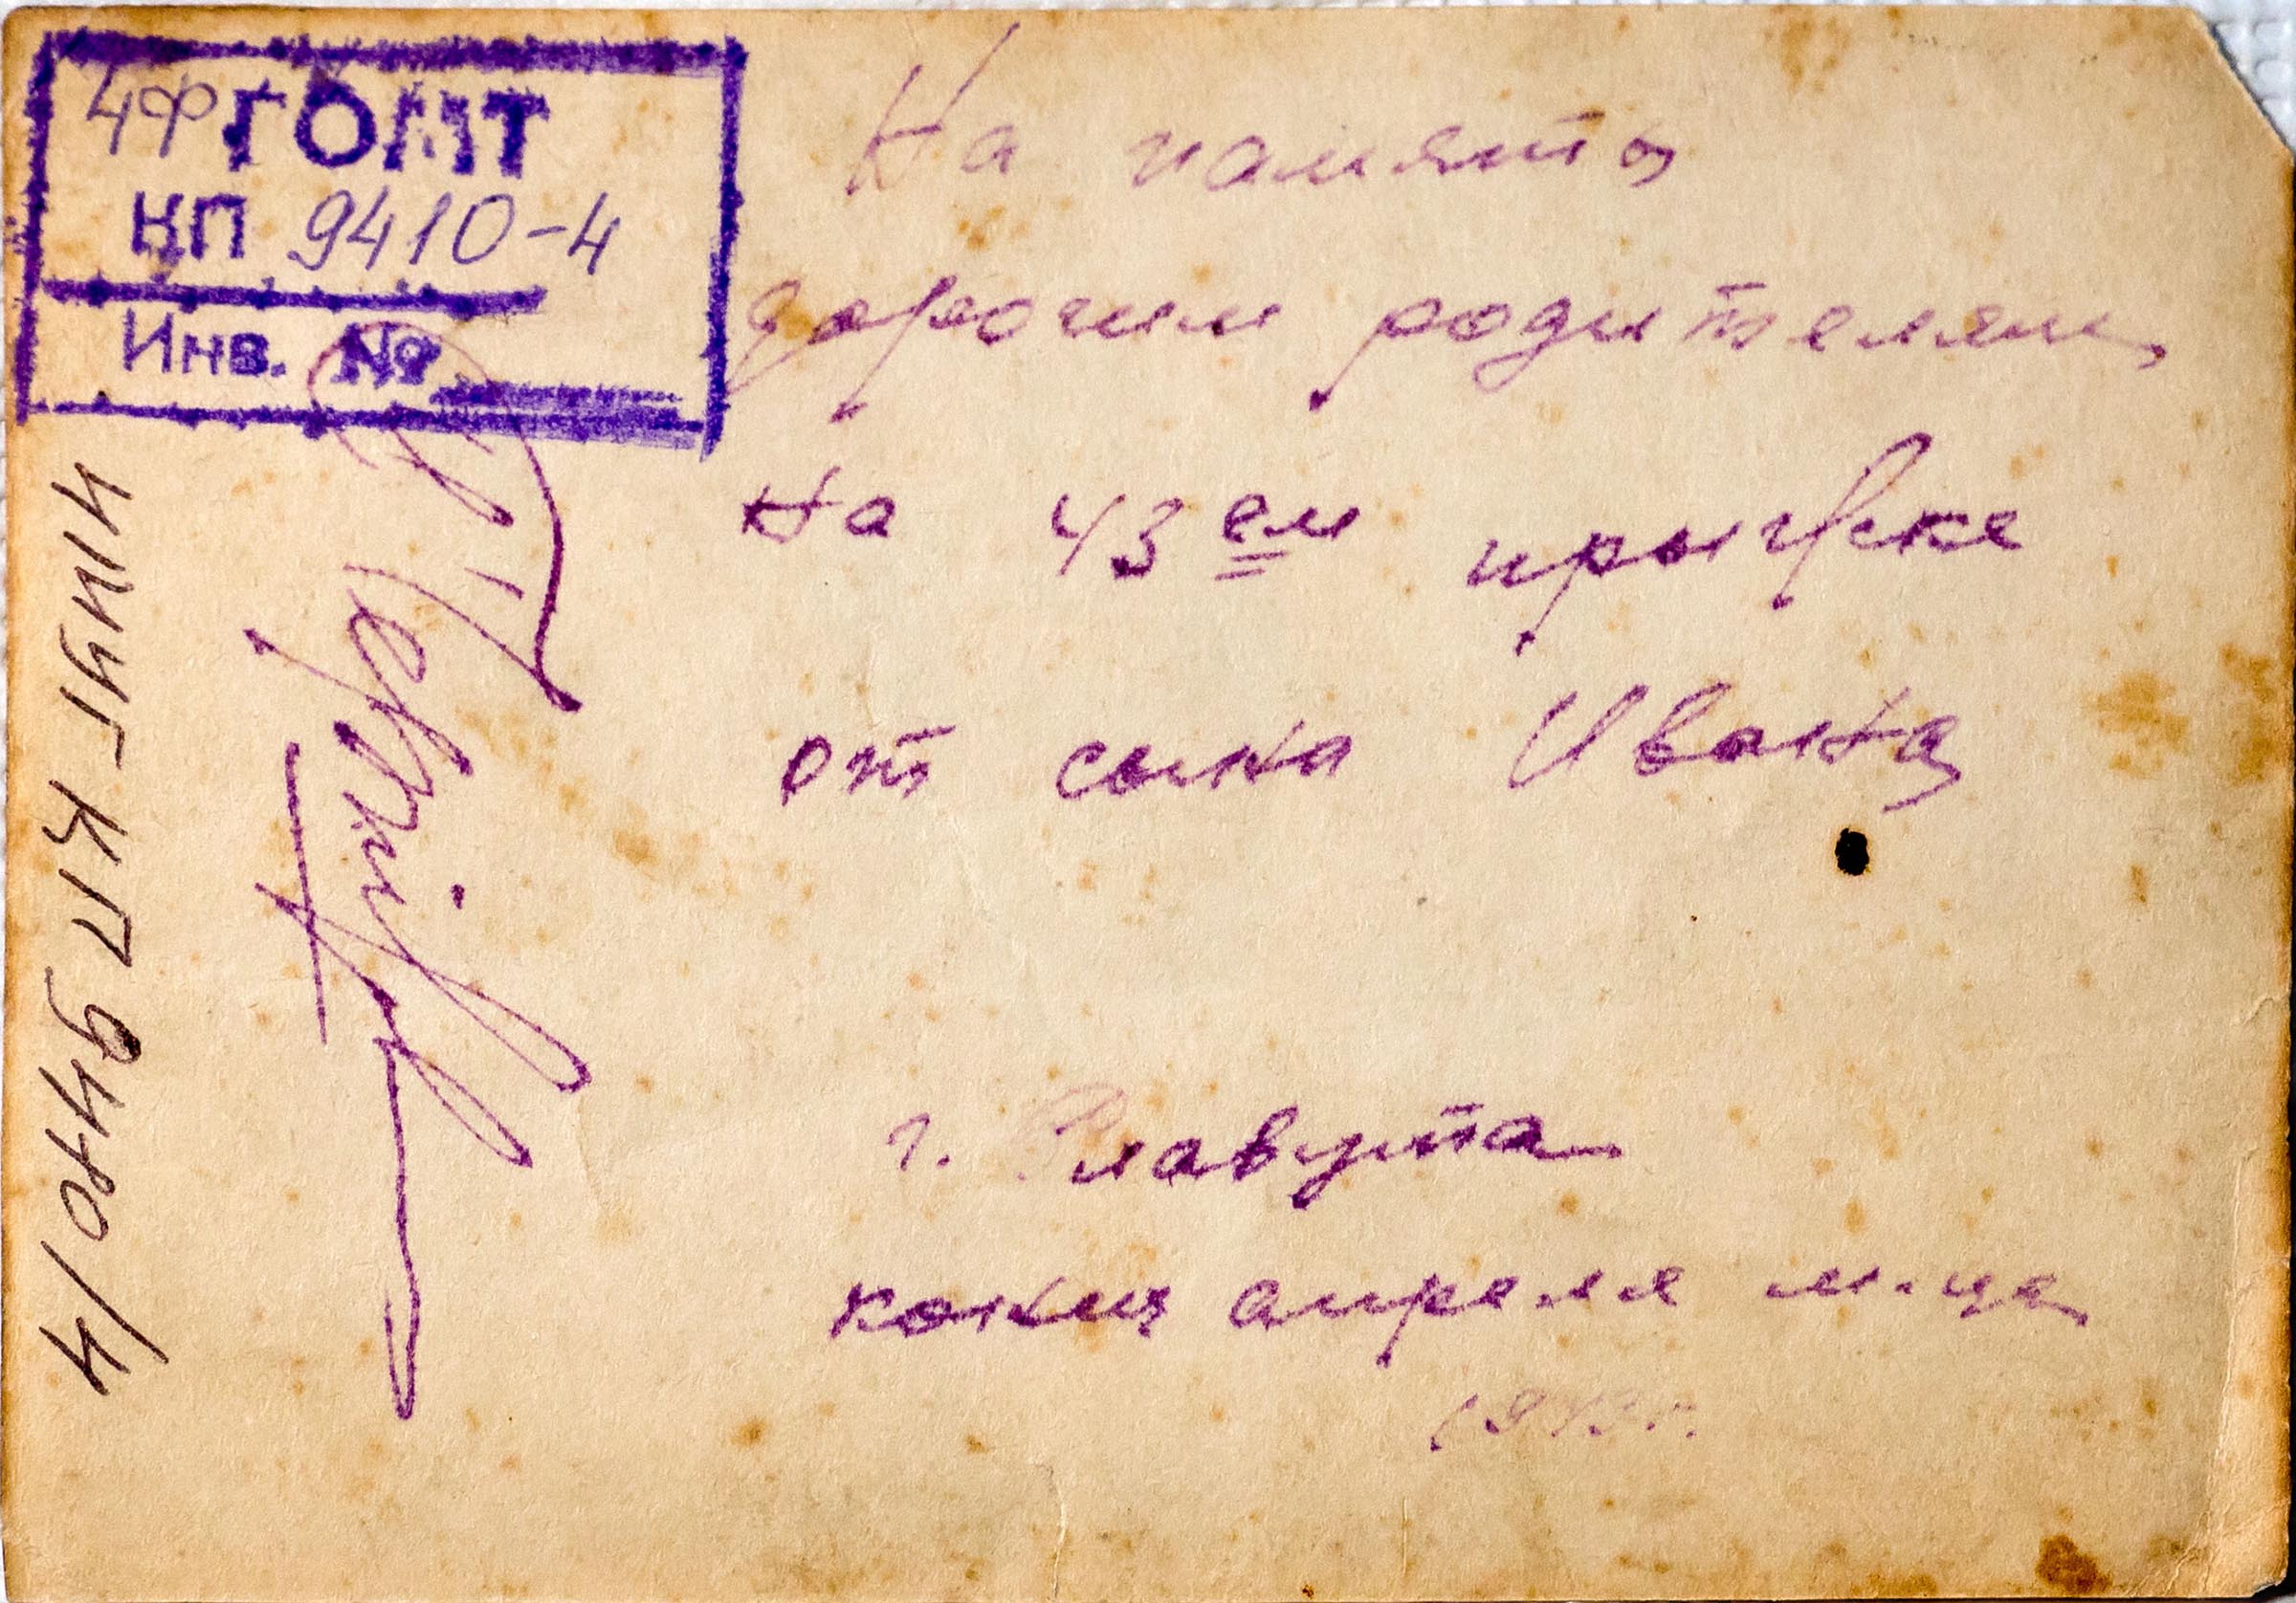 ЧФ ГОМТ
КП 9410-4
Инв. №
КП 9410/4
На память
дорогим родителям
на 43 ем
от сына Ивана
г. Славута
конец апреля м-ца